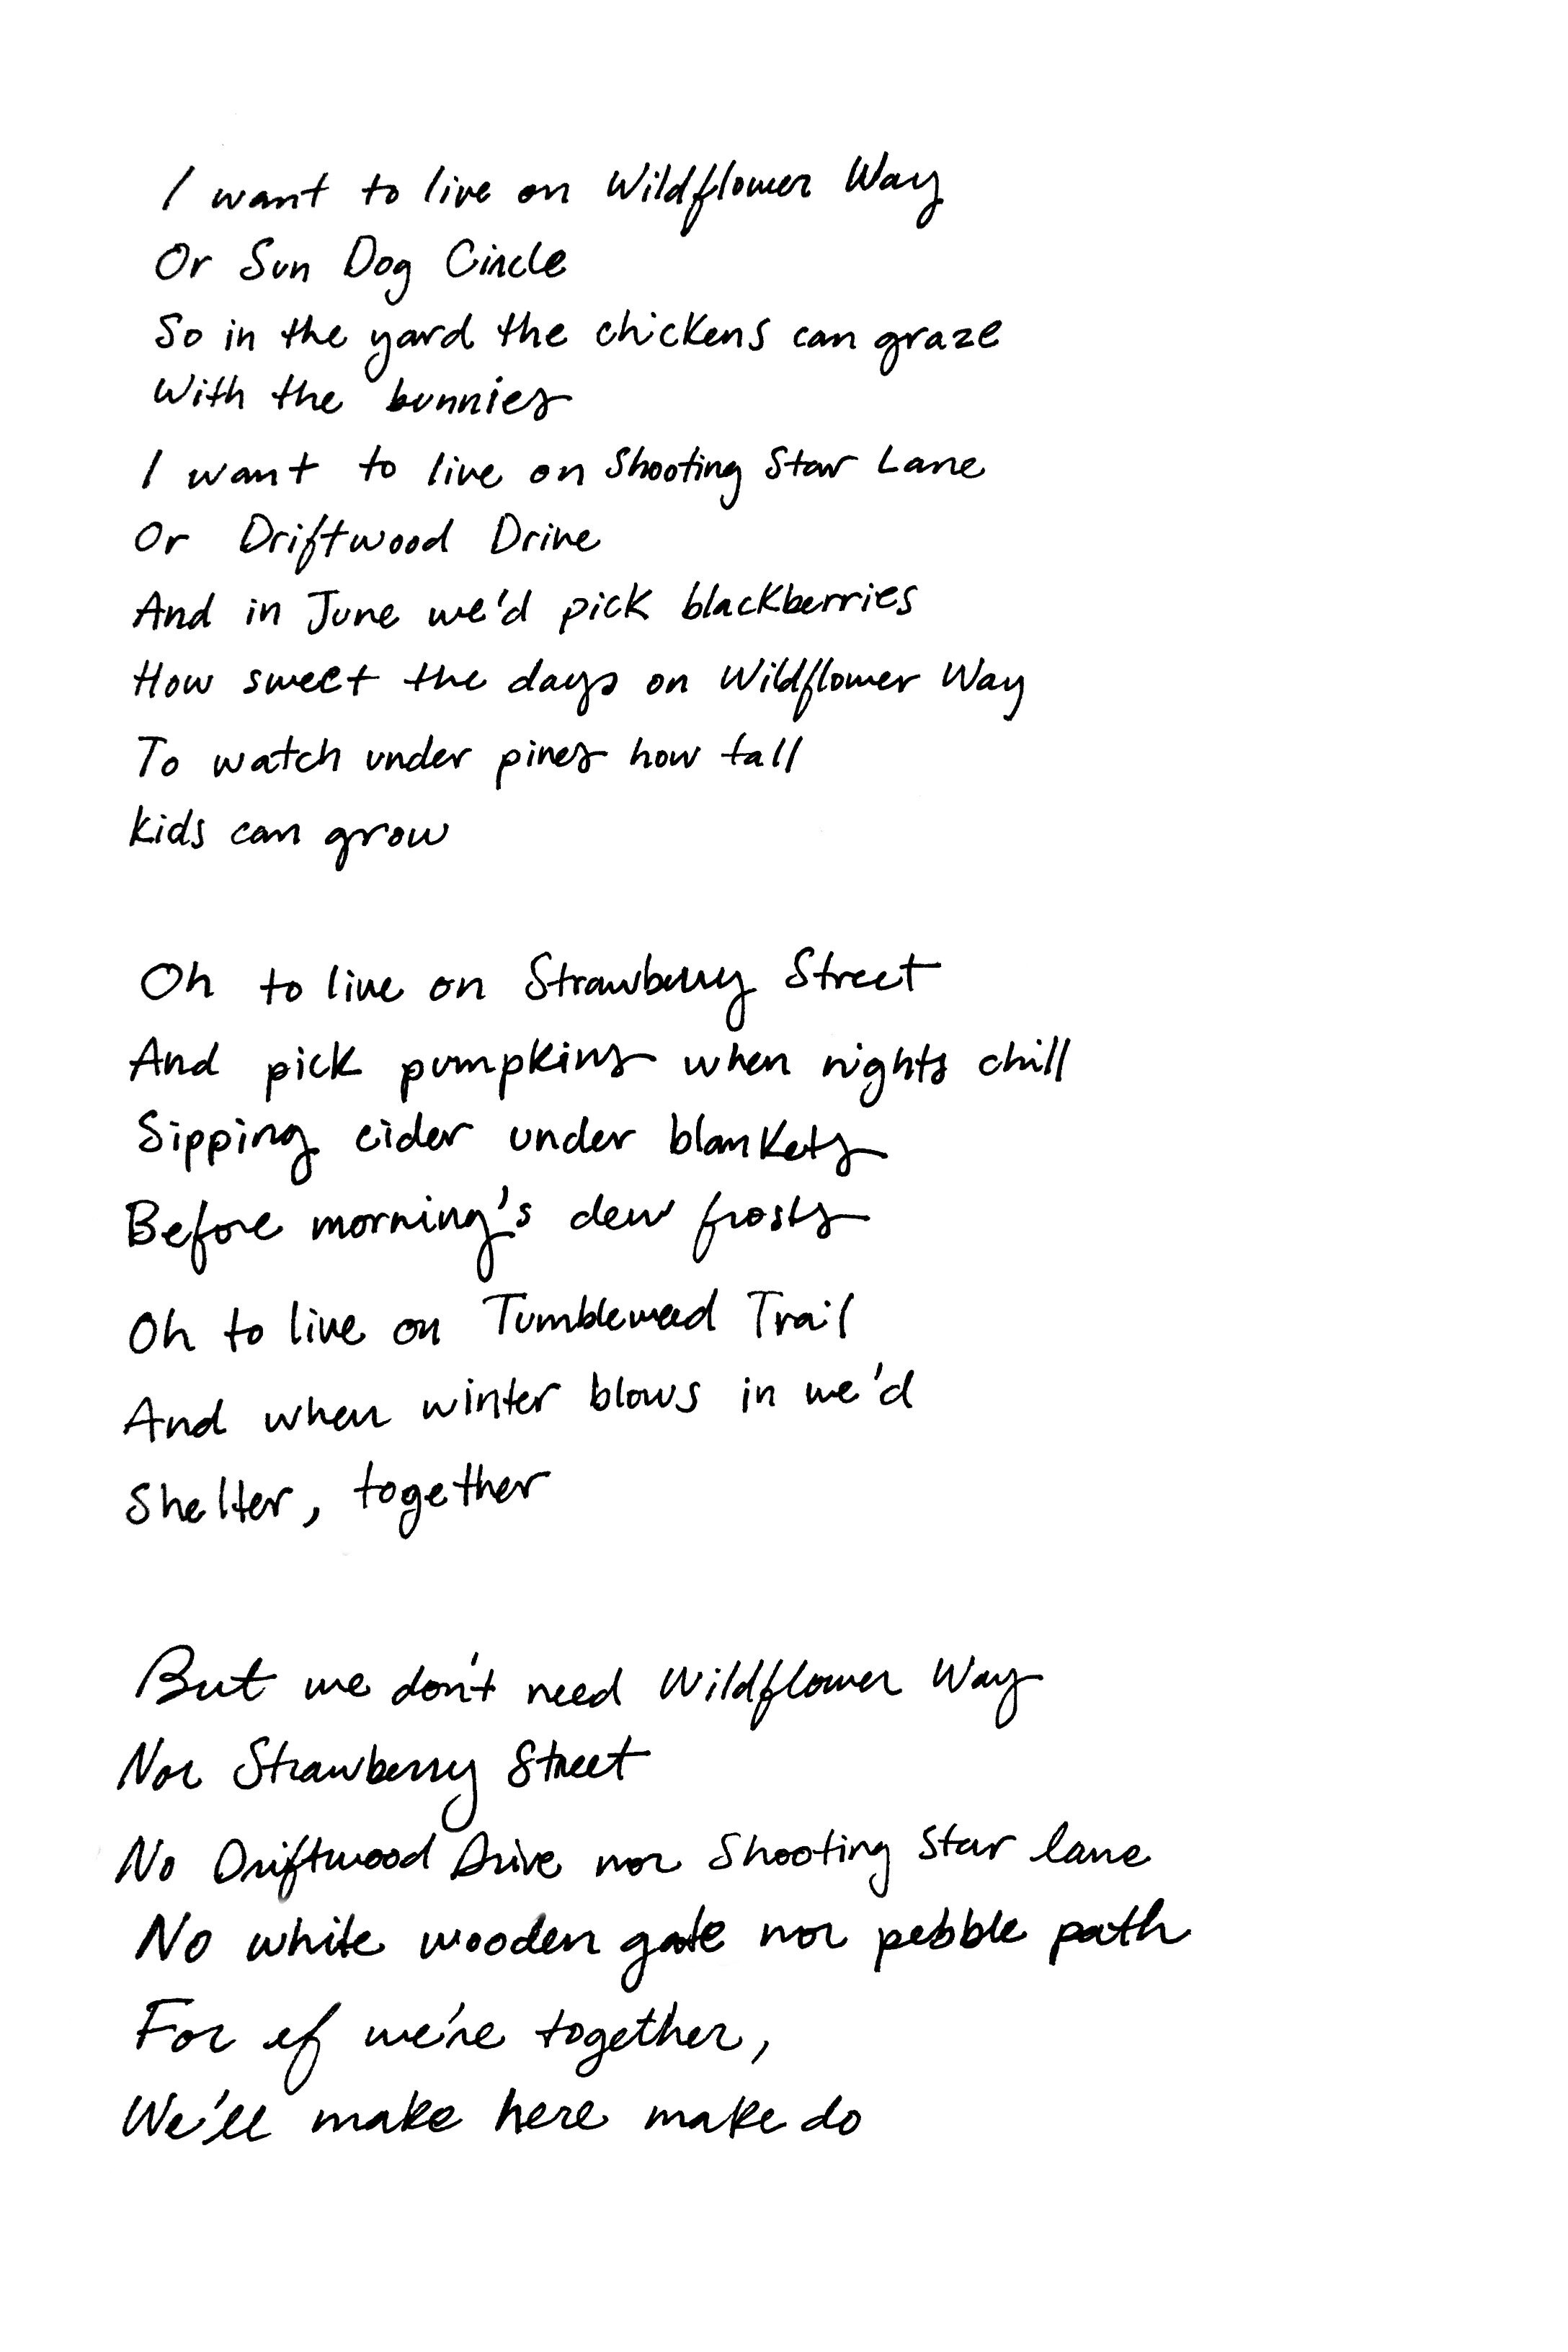 I want to live on Wildflower Way
Or Sun Dog Circle
So in the yard the chickens can graze
With the bunnies
I want to live on Shooting Star Lane
Or Driftwood Drive
And in June we'd pick blackberries
How sweet the days on Wildflower Way
To watch under pines how tall
kids can grow
Oh to live on Strawberry Street
And pick pumpkins when nights chill
Sipping cider under blankets
Before morning's dew frosts
Oh to live on Tumbleweed Trail
And when winter blows in we'd
Shelter, together
But we don't need Wildflower Way
Nor Strawberry Street
No Driftwood Drive nor Shooting Star lane
No white wooden gate nor pebble path
For if we're together,
We'll make here make do